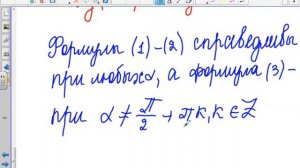 Формулы (1)-(2) справедливы
при любых α, а формула (3)-
при α ≠ π/2 + πк, к ∈ Z